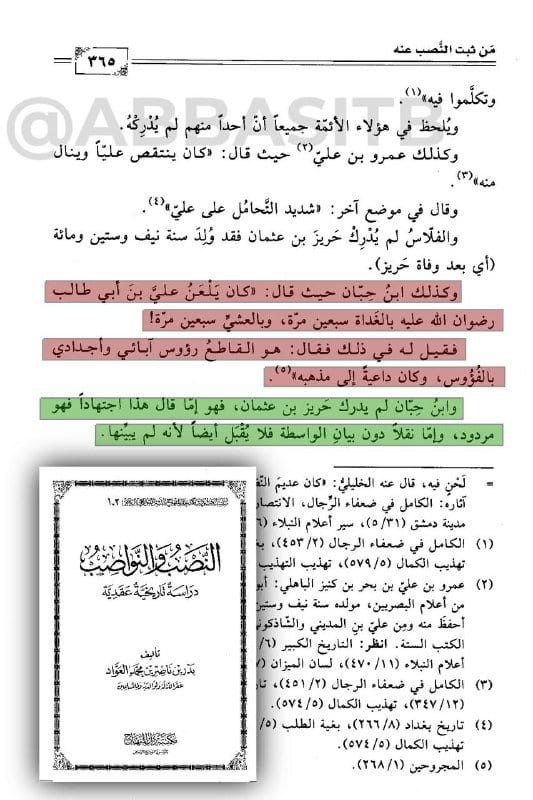 مَن ثبت النَّصب عنه
٣٦٥
@ABBASITB
وتكلَّموا فيه»(١).
ويُلحظ في هؤلاء الأئمّة جميعاً أنّ أحداً منهم لم يُدْرِكْهُ.
وكذلك عمرو بن عليّ(٢) حيث قال: «كان ينتقص عليّاً وينال
منه»(٣).
وقال في موضع آخر: «شديد التَّحامُل على عليّ»(٤).
والفلّاسُ لم يُدْرِكْ حَريزَ بن عثمان فقد وُلِدَ سنة نيف وستين ومائة
(أي بعد وفاة حَريز).
وكذلك ابنُ حِبّان حيث قال: «كان يَلْعَنُ عليَّ بنَ أبي طالب
رضوان الله عليه بالغَداة سبعين مرّة، وبالعشيِّ سبعين مرّة!
فقيل له في ذلك فقال: هو القاطعُ رؤوس آبائي وأجدادي
بالفُؤُوس، وكان داعيةً إلى مذهبه»(٥).
وابنُ حِبّان لم يدرك حَريز بن عثمان، فهو إمّا قال هذا اجتهاداً فهو
مردود، وإمّا نقلاً دون بيانِ الواسطة فلا يُقْبَل أيضاً لأنه لم يبيِّنها.
= لَحْنٍ فيه، قال عنه الخليليُّ: «كان عديمَ
آثاره: الكامل في ضعفاء الرِّجال، الانتصار
مدينة دمشق (٣١/٥)، سير أعلام النبلاء
(١) الكامل في ضعفاء الرجال (٤٥٣/٢)،
تهذيب الكمال (٥٧٩/٥)، تهذيب التهذيب
(٢) عمرو بن عليّ بن بحر بن كنيز الباهلي:
من أعلام البصريين، مولده سنة نيف وستين
أحفظَ منه ومِن عليّ بنِ المديني والشّاذكوني
الكتب الستة. انظر: التاريخ الكبير
أعلام النبلاء (٤٧٠/١١)، لسان الميزان
(٣) الكامل في ضعفاء الرجال (٤٥١/٢)،
(٣٤٧/١٢)، تهذيب الكمال (٥٧٤/٥).
(٤) تاريخ بغداد (٢٦٦/٨)، بغية الطلب
تهذيب الكمال (٥٧٤/٥).
(٥) المجروحين (٢٦٨/١).
النَّصْبُ والنَّواصِبُ
دراسة تاريخية عقدية
تأليف
بدر بن ناصر بن محمد العواد